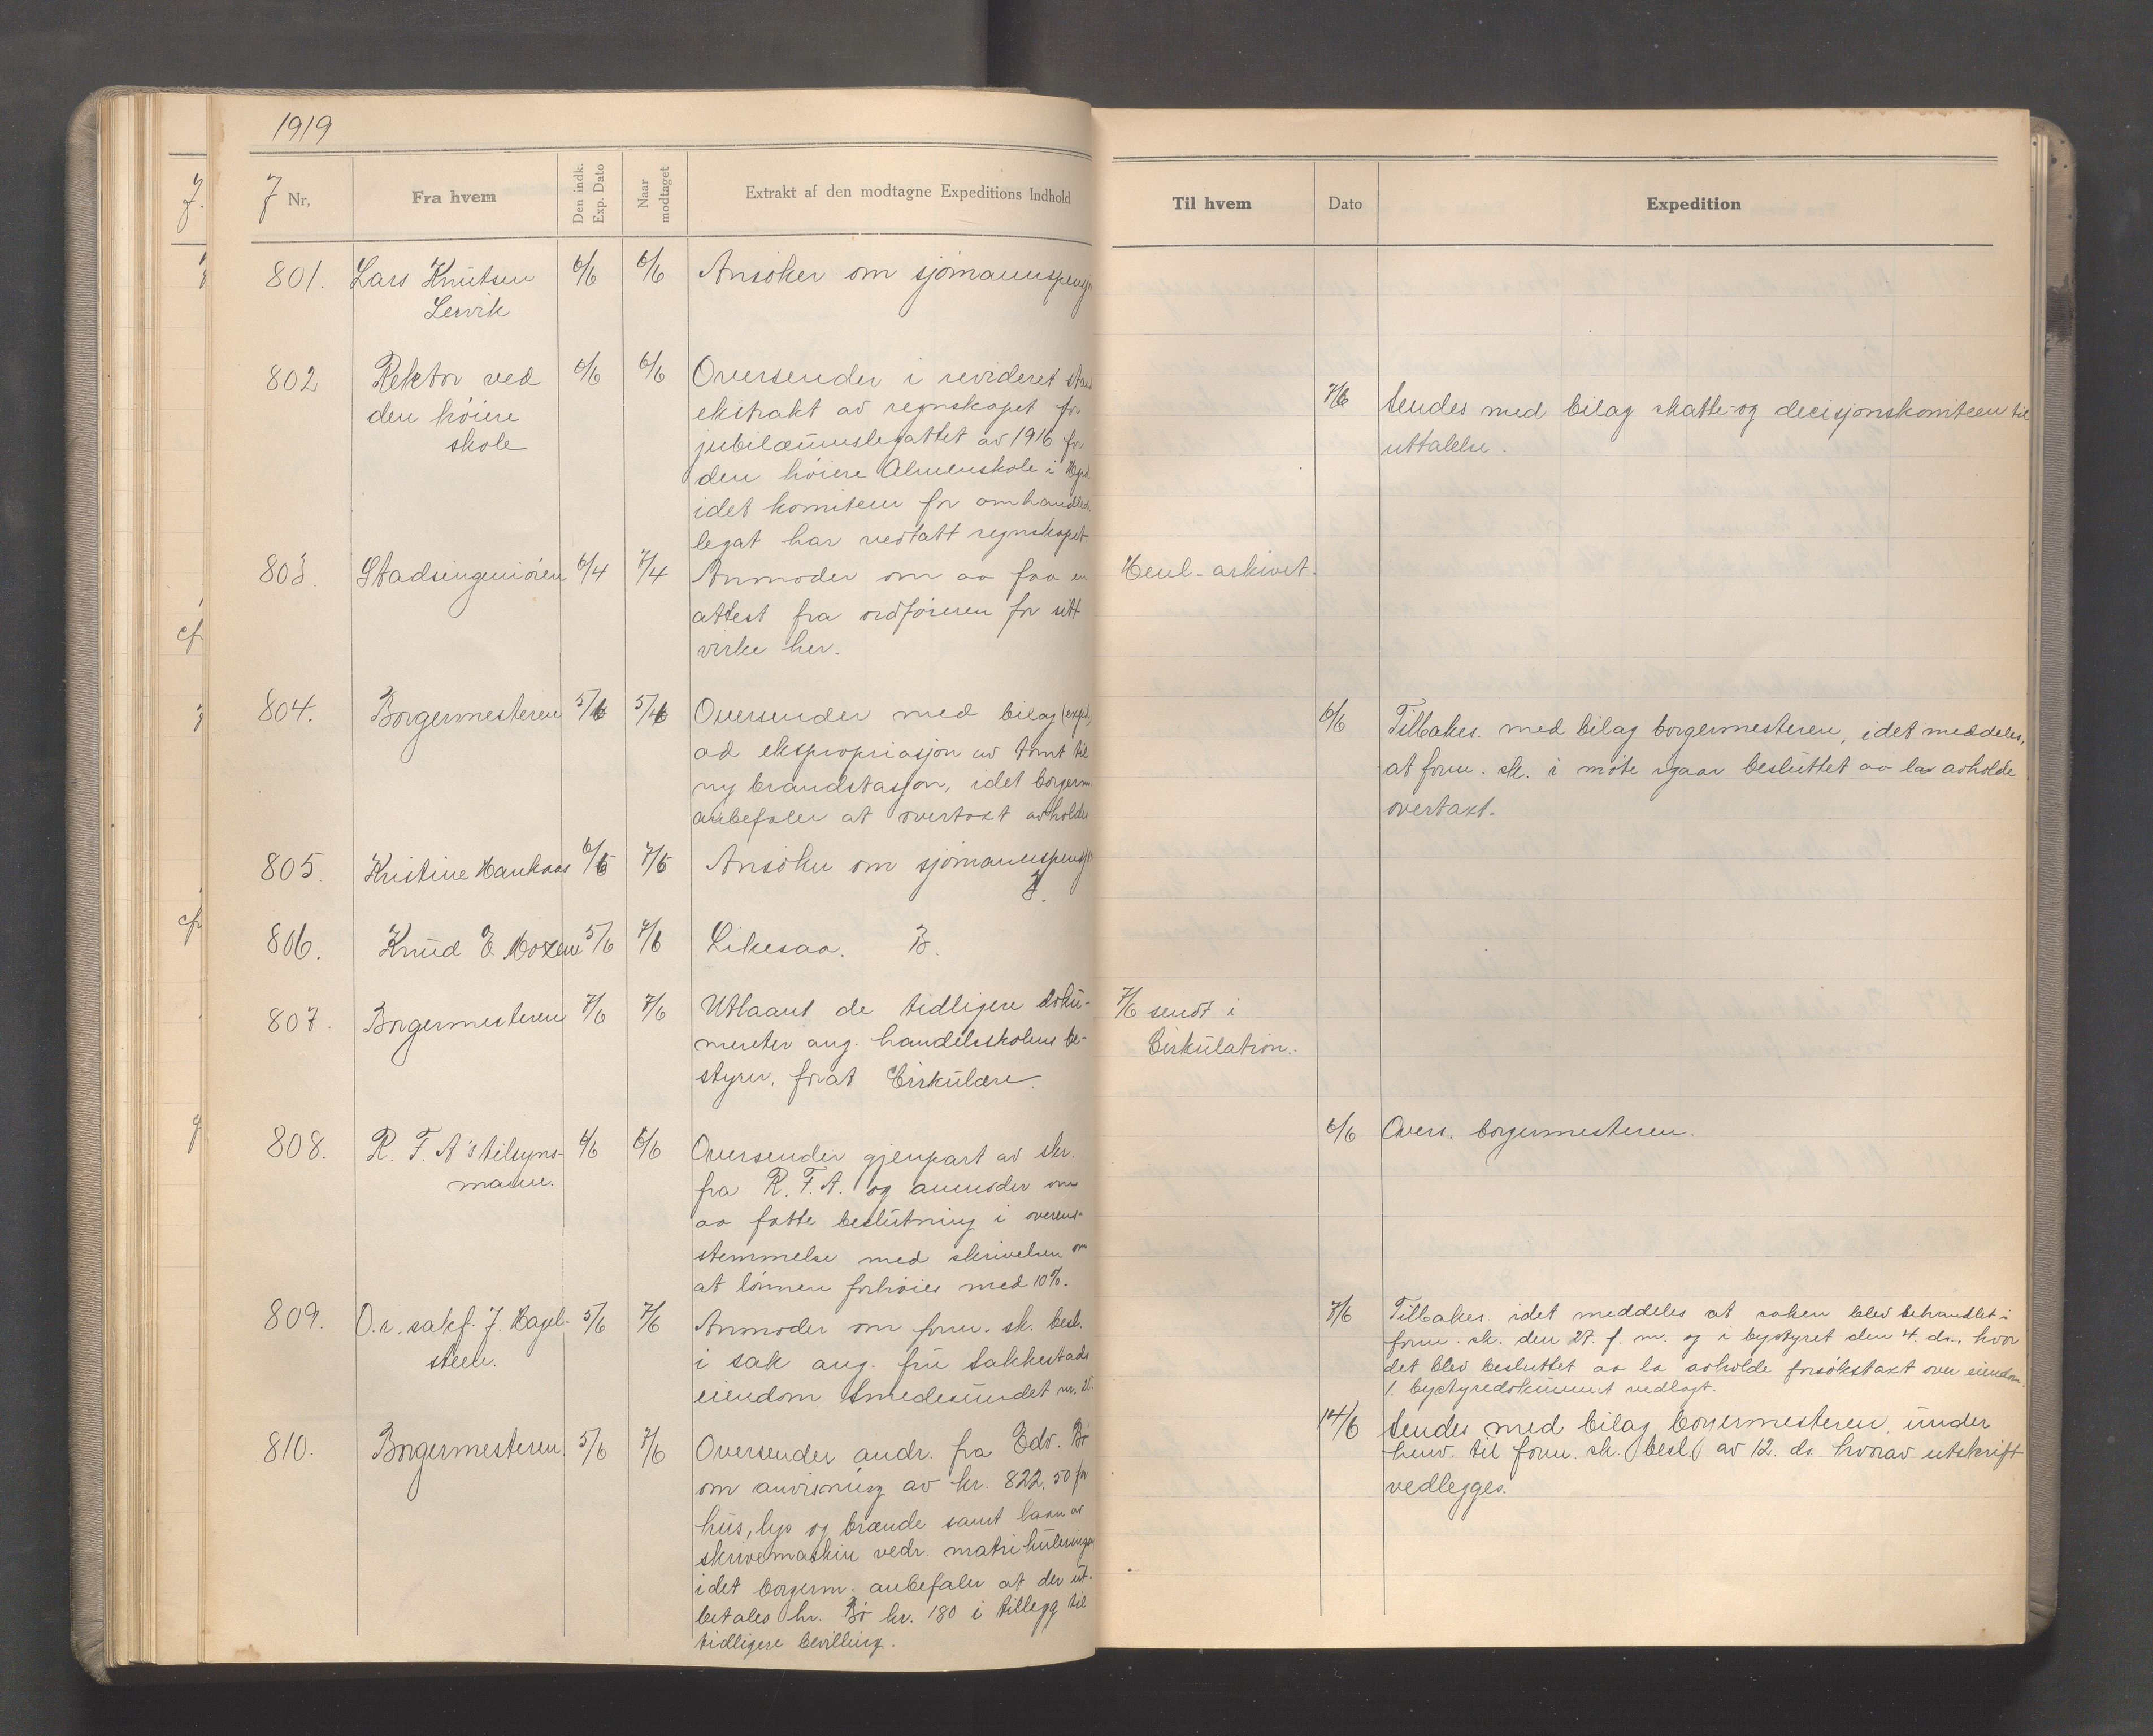 1919
J Nr,
Fra hvem
Den indk. Exp. Dato
Naar modtaget
Extrakt af den modtagne Expeditions Indhold
Til hvem
Dato
Expedition
801. Lars Knutsen 6/6 6/6 Ansøker om sjømannspensjon
Lervik
802 Rektor ved 6/6 6/6 Oversender i revideret stand
den høiere ekstrakt av regnskapet for
skole jubilæumslegattet av 1916 for
den høiere Almenskole i
idet komiteen for omhandlede
legat har vedtatt regnskapet.
7/6 Sendes med bilag skatte- og decisjonskomiteen til
uttalelse.
803. Stadsingeniøren 6/4 7/4 Anmoder om aa faa en
attest fra ordføreren for sitt
virke her.
Henl- arkivet.
804. Borgermesteren 5/6 5/6 Oversender med bilag
ad ekspropriasjon av tomt til
ny brandstasjon, idet borgerm.
anbefaler at overtaxt avholdes
6/6 Tilbakes. med bilag borgermesteren, idet meddeles,
at form. sk. i møte igaar besluttet aa la avholde
overtaxt.
805. Kristine Haukaas 6/6 7/6 Ansøker om sjømannspensjon
B.
806. Knud E 5/6 7/6 Likesaa. B.
807. Borgermesteren 7/6 7/6 Utlaant de tidligere doku-
menter ang. handelsskolens be-
styrer, forat Cirkulære.
7/6 sendt i
Cirkulation.
808. R. F. A's tilsyns- 4/6 6/6 Oversender gjenpart av skr.
mann. fra R. F. A. og anmoder om
aa fatte beslutning i overens-
stemmelse med skrivelsen om
at lønnen forhøies med 10%.
6/6 Overs. borgermesteren.
809. O.r. sakf. J. Hagel- 5/6 7/6 Anmoder om form. sk. besl.
steen. i sak ang. fru Sakkestads
eiendom Smedesundet nr. 25.
7/6 Tilbakes. idet meddeles at saken blev behandlet i
form. sk. den 27. f. m. og i bystyret den 4. ds., hvor
det blev besluttet aa la avholde forsøkstaxt over eiendom.
1. bystyredokument vedlagt.
810. Borgermesteren. 5/6 7/6 Oversender andr. fra Edv. Bø
om anvisning av kr. 822,50 for
hus, lys og brænde samt laan av
skrivemaskin vedr. matrikuleringen
idet borgerm. anbefaler at der ut-
betales hr. Bø kr. 180 i tillegg til
tidligere bevilling.
14/6 Sendes med bilag borgermesteren under
henv. til form. sk. besl. av 12. ds. hvorav utskrift
vedlegges.